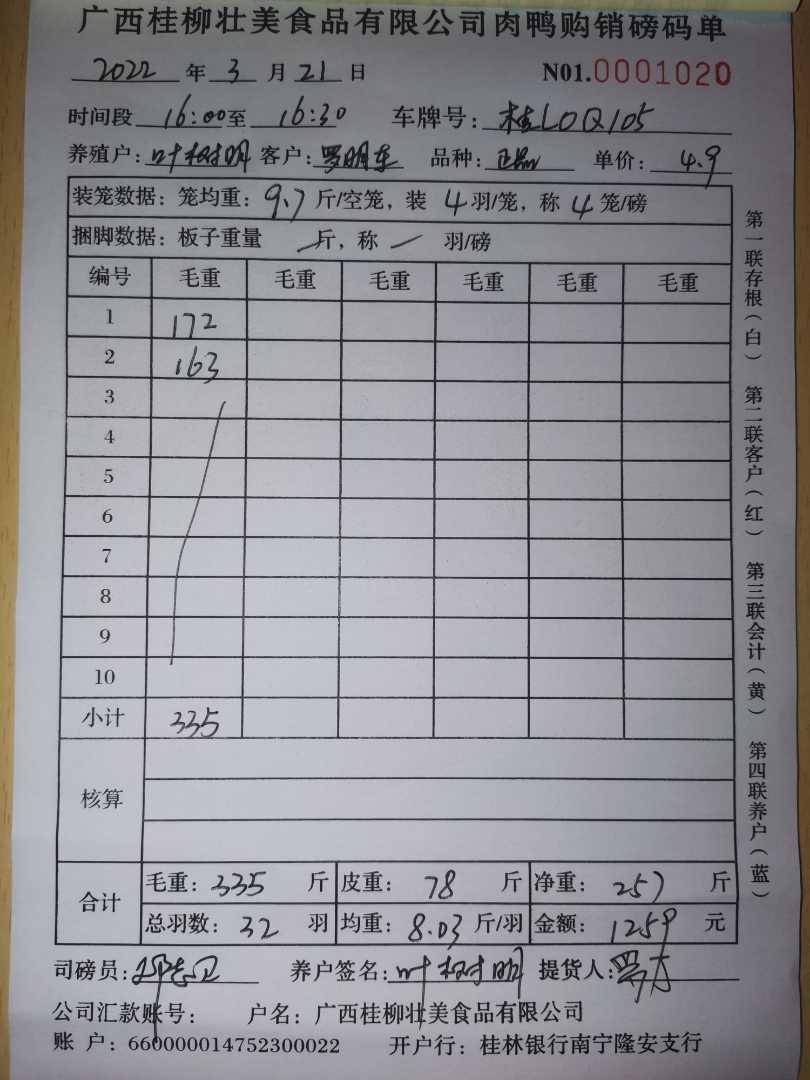 广西桂柳壮美食品有限公司肉鸭购销磅码单
2022 年 3 月 21 日 N01.0001020
时间段 16:00 至 16:30 车牌号: 桂L0Q105
养殖户: 叶树明 客户: 罗明东 品种: 正品 单价: 4.9
装笼数据: 笼均重: 9.7 斤/空笼, 装 4 羽/笼, 称 4 笼/磅
捆脚数据: 板子重量 — 斤, 称 — 羽/磅
编号 毛重 毛重 毛重 毛重 毛重 毛重
1 172
2 163
3
4
5
6
7
8
9
10
小计 335
核算
合计 毛重: 335 斤 皮重: 78 斤 净重: 257 斤
总羽数: 32 羽 均重: 8.03 斤/羽 金额: 1259 元
司磅员: 养户签名: 叶树明 提货人:
公司汇款账号: 户名: 广西桂柳壮美食品有限公司
账 户: 660000014752300022 开户行: 桂林银行南宁隆安支行
第一联存根(白) 第二联客户(红) 第三联会计(黄) 第四联养户(蓝)